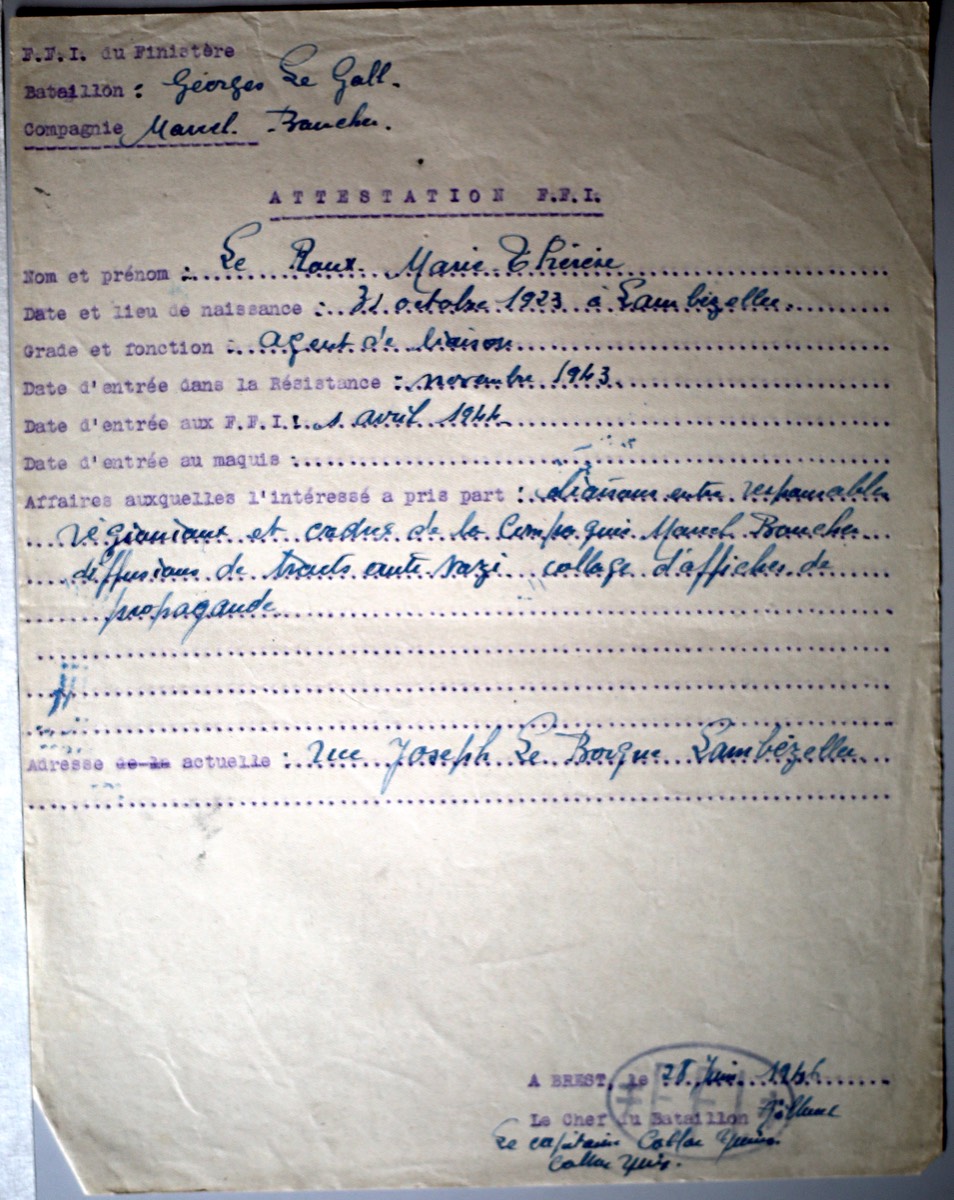 F.F.I. du Finistère
Bataillon : Georges Le Gall.
Compagnie Marcel Boucher.
ATTESTATION F.F.I.
Nom et prénom : Le Roux Marie Thérèse
Date et lieu de naissance : 31 octobre 1923 à Lambézellec.
Grade et fonction : agent de liaison
Date d'entrée dans la Résistance : novembre 1943
Date d'entrée aux F.F.I. : 1 avril 1944
Date d'entrée au maquis :
Affaires auxquelles l'intéressé a pris part : Liaisons entre responsables
régionaux et cadres de la Compagnie Marcel Boucher
diffusions de tracts anti nazi collage d'affiches de
propagande
Adresse de la actuelle : rue Joseph Le Borgne Lambézellec
A BREST, le 28 Juin 1946
Le Chef du Bataillon
Le capitaine